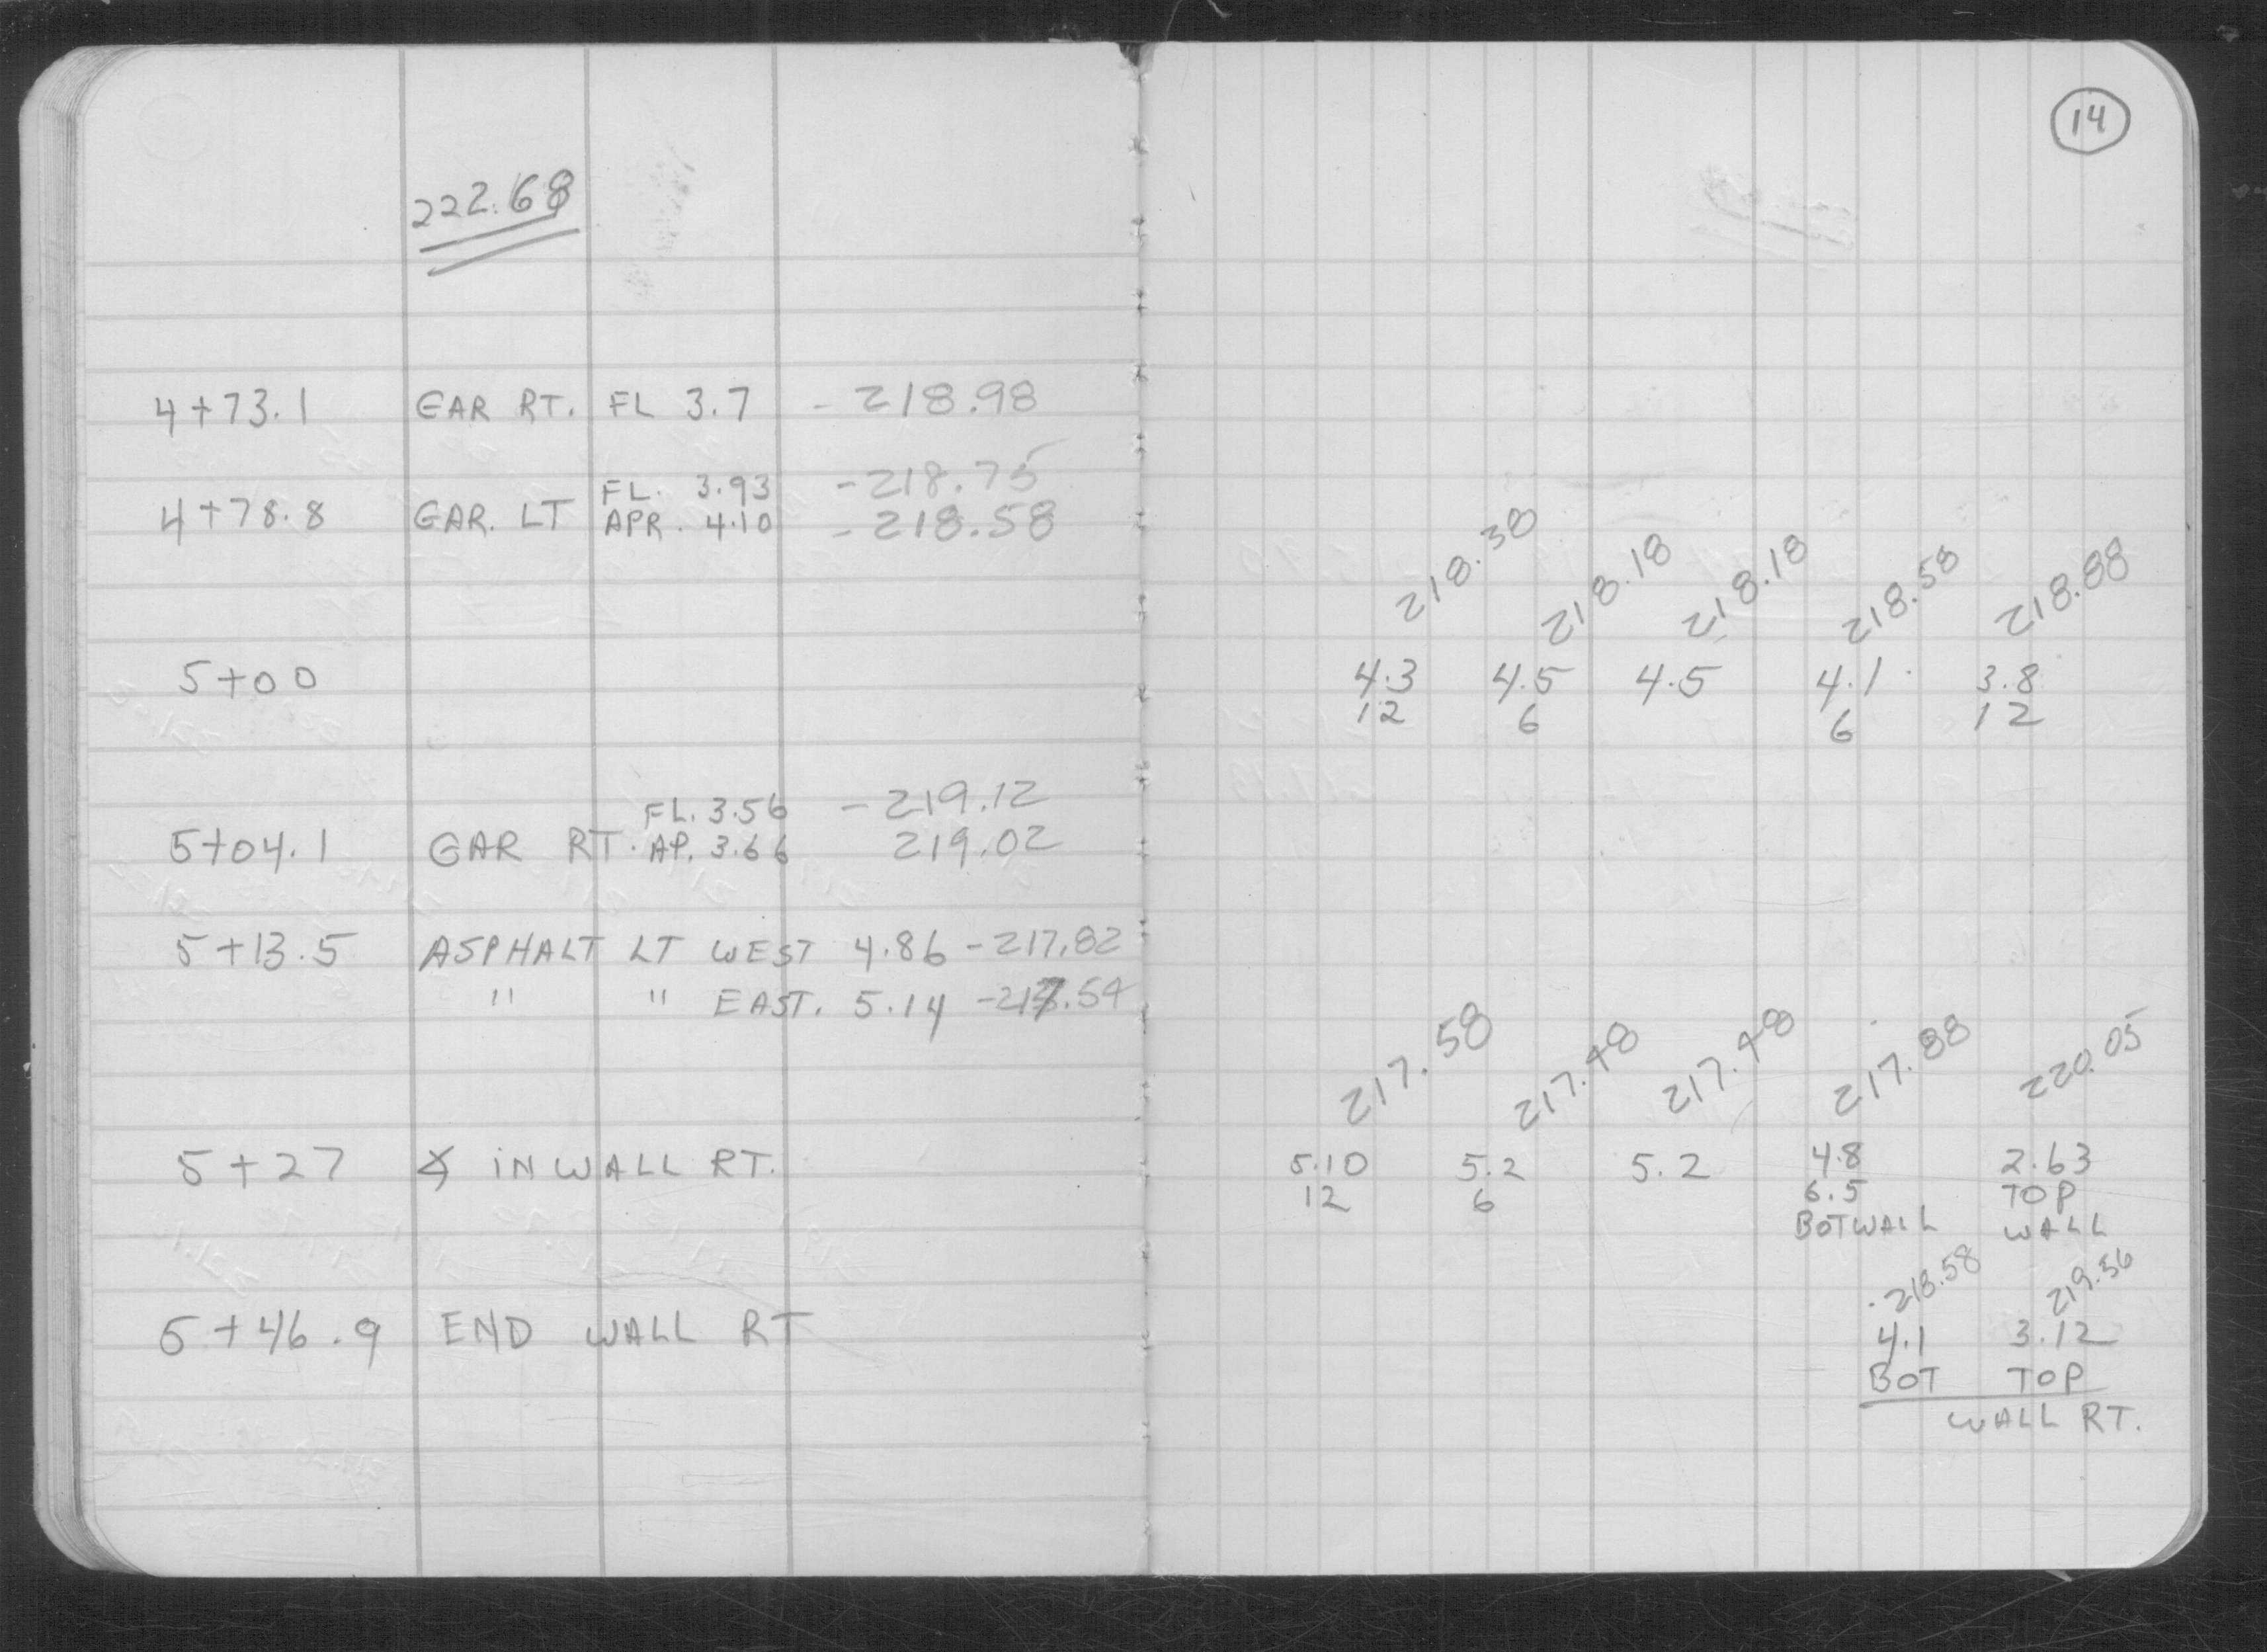 14
222.68
4+73.1 GAR RT. FL 3.7 - 218.98
FL. 3.93 - 218.75
4+78.8 GAR. LT APR. 4.10 - 218.58
218.38 218.18 218.18 218.58 218.88
5+00 4.3 4.5 4.5 4.1 3.8
12 6 6 12
FL. 3.56 - 219.12
5+04.1 GAR RT. AP. 3.66 219.02
5+13.5 ASPHALT LT WEST 4.86 - 217.82
" " EAST. 5.14 - 217.54
217.58 217.48 217.48 217.88 220.05
5+27 ∡ IN WALL RT. 5.10 5.2 5.2 4.8 2.63
12 6 6.5 TOP
BOT WALL WALL
218.58 219.56
5+46.9 END WALL RT 4.1 3.12
BOT TOP
WALL RT.